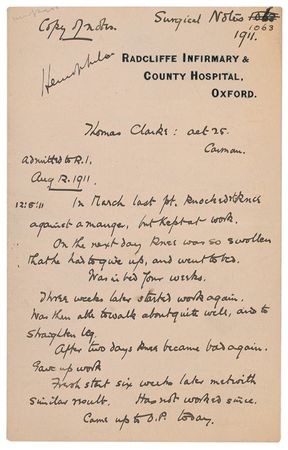 Copy of notes.
Surgical Notes
1063
1911.
Hemophilia
RADCLIFFE INFIRMARY &
COUNTY HOSPITAL,
OXFORD.
Thomas Clarke: aet 25.
Carman.
Admitted to R.I.
Aug 12. 1911.
12:8:11 In March last pt. knocked R knee
against a manger, but kept at work.
On the next day knee was so swollen
that he had to give up, and went to bed.
Was in bed four weeks.
Three weeks later started work again.
Was then able to walk about quite well, and to
straighten leg.
After two days knee became bad again.
Gave up work
Fresh start six weeks later met with
similar result. Has not worked since.
Came up to O.P. today.